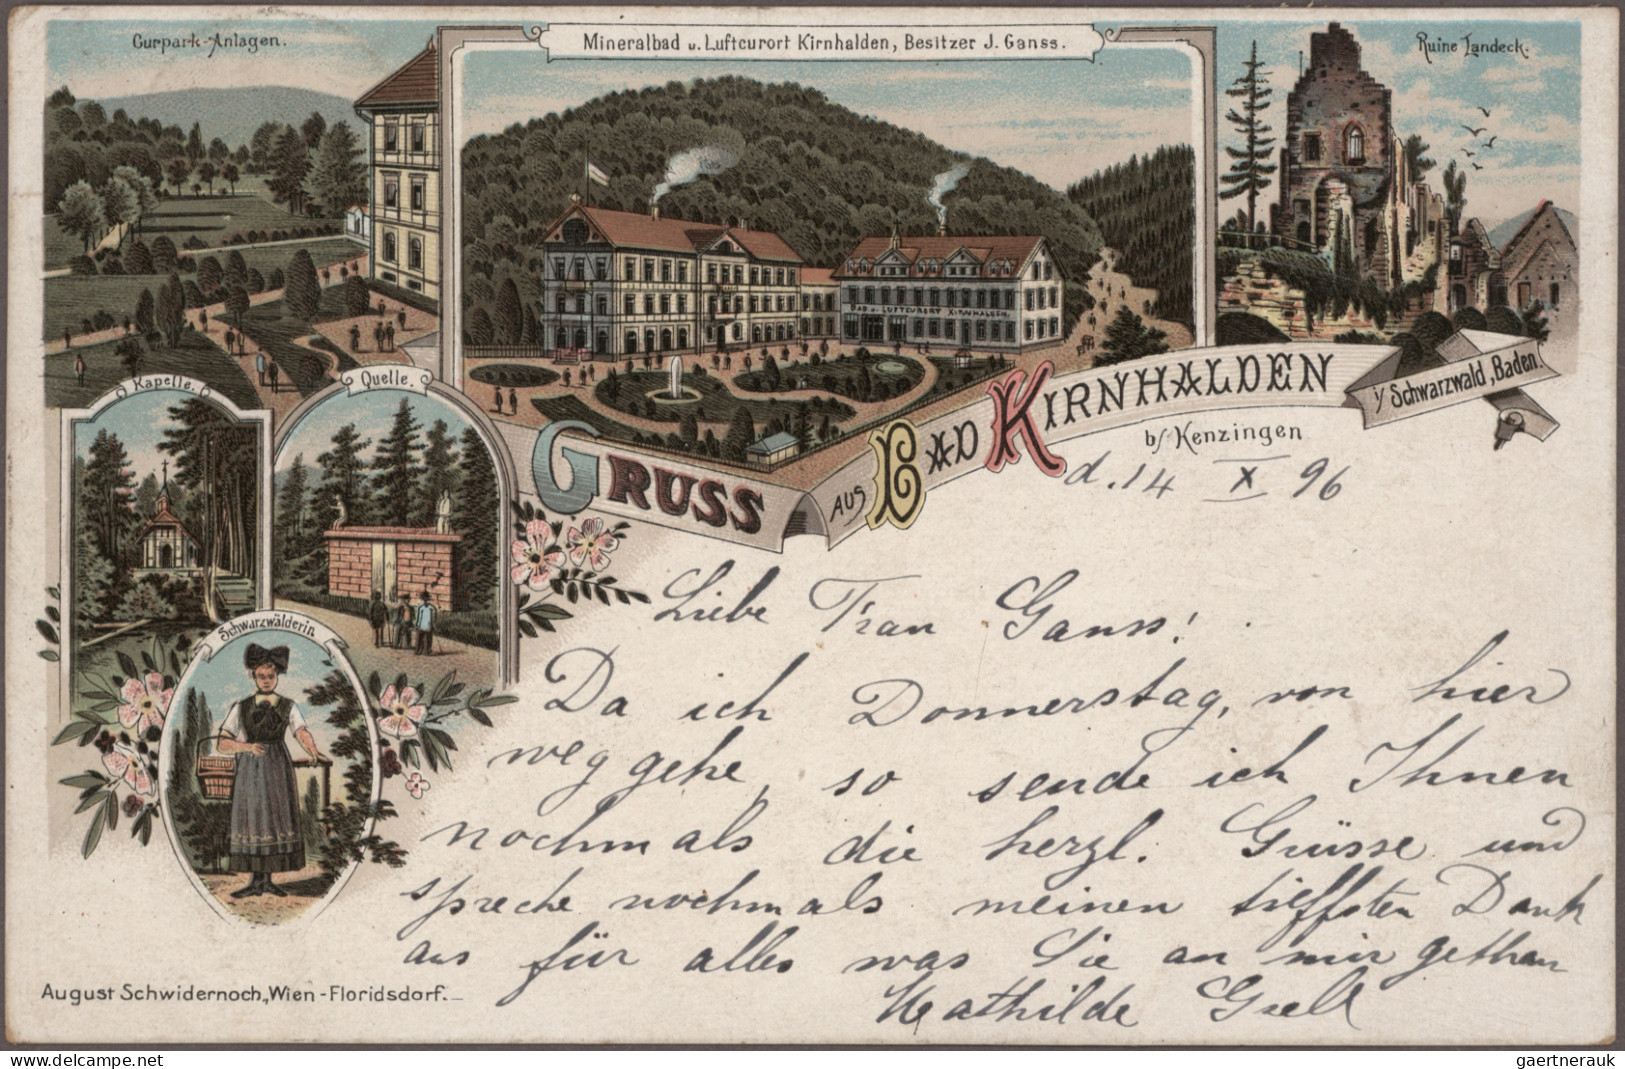 Curpark-Anlagen.
Mineralbad u. Luftcurort Kirnhalden, Besitzer J. Ganss.
Ruine Landeck.
BAD u. LUFTCURORT KIRNHALDEN.
Kapelle.
Quelle.
GRUSS AUS BAD KIRNHALDEN
i/ Schwarzwald, Baden.
b/ Kenzingen
d. 14 X 96
Schwarzwälderin
Liebe Frau Ganss!
Da ich Donnerstag, von hier
weg gehe, so sende ich Ihnen
nochmals die herzl. Grüsse und
spreche nochmals meinen tieffsten Dank
aus für alles was Sie an mir gethan
Mathilde Gsell
August Schwidernoch, Wien-Floridsdorf.
www.delcampe.net
gaertnerauk